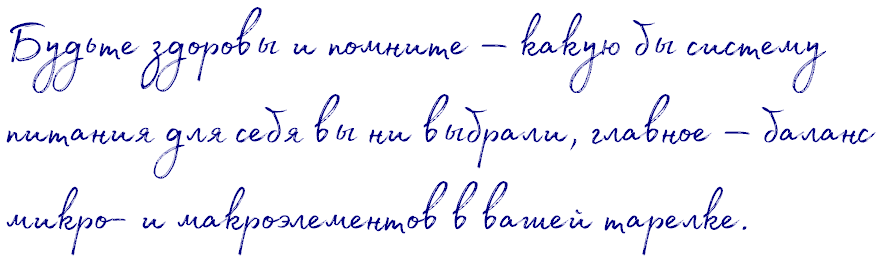 Будьте здоровы и помните — какую бы систему
питания для себя вы ни выбрали, главное — баланс
микро- и макроэлементов в вашей тарелке.